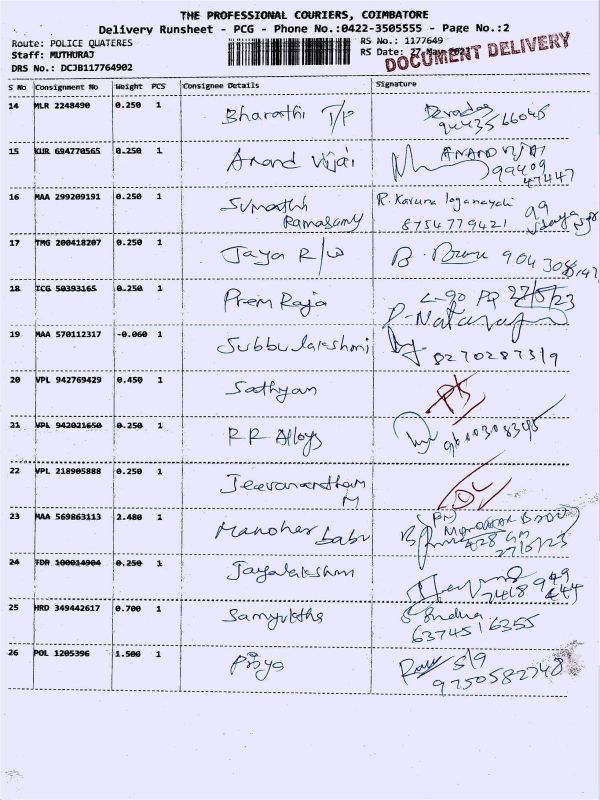 THE PROFESSIONAL COURIERS, COIMBATORE
Delivery Runsheet - PCG - Phone No.:0422-3505555 - Page No.:2
Route: POLICE QUATERES
RS No.: 1177649
Staff: MUTHURAJ
RS Date: 27 May 2023
DRS No.: DCJB117764902
DOCUMENT DELIVERY
S No Consignment No Weight PCS Consignee Details Signature
14 MLR 2248490 0.250 1 Bharathi T/P
9443566045
15 KUR 694770565 0.250 1 Anand Vijai ANAND VIJAI
99409
47447
16 MAA 299209191 0.250 1 Sumathi R. Karuna loganayaki
Ramasamy 8754779421 99
17 TMG 200418207 0.250 1 Jaya R/W B.
18 ICG 50393165 0.250 1 Prem Raja 27/5/23
P. Natarajan
19 MAA 570112317 -0.060 1 Subbulakshmi
8270287319
20 VPL 942769429 0.450 1 Sathyam
21 VPL 942021650 0.250 1 RR Alloys
22 VPL 218905888 0.250 1 Jeevanantham
M
23 MAA 569863113 2.480 1 Manohar babu MANOHAR BABU
27/5/23
24 TDR 100014904 0.250 1 Jayalakshmi
25 HRD 349442617 0.700 1 Samyuktha
6374516355
26 POL 1205396 1.500 1 Priya S/9
9750582748